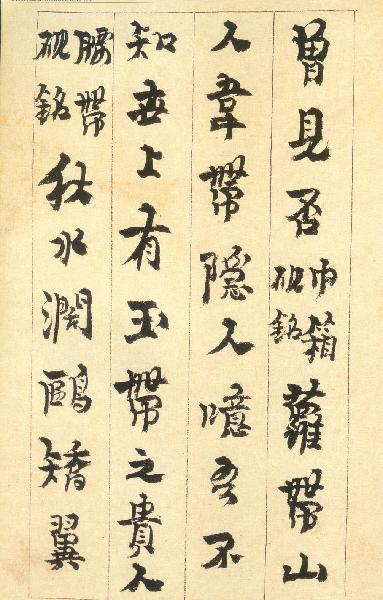 曾見否巾箱硯銘蘿帶山
人韋帶隱人噫吾不
知世上有玉帶之貴人
腰帶硯銘秋水闊鷗矯翼